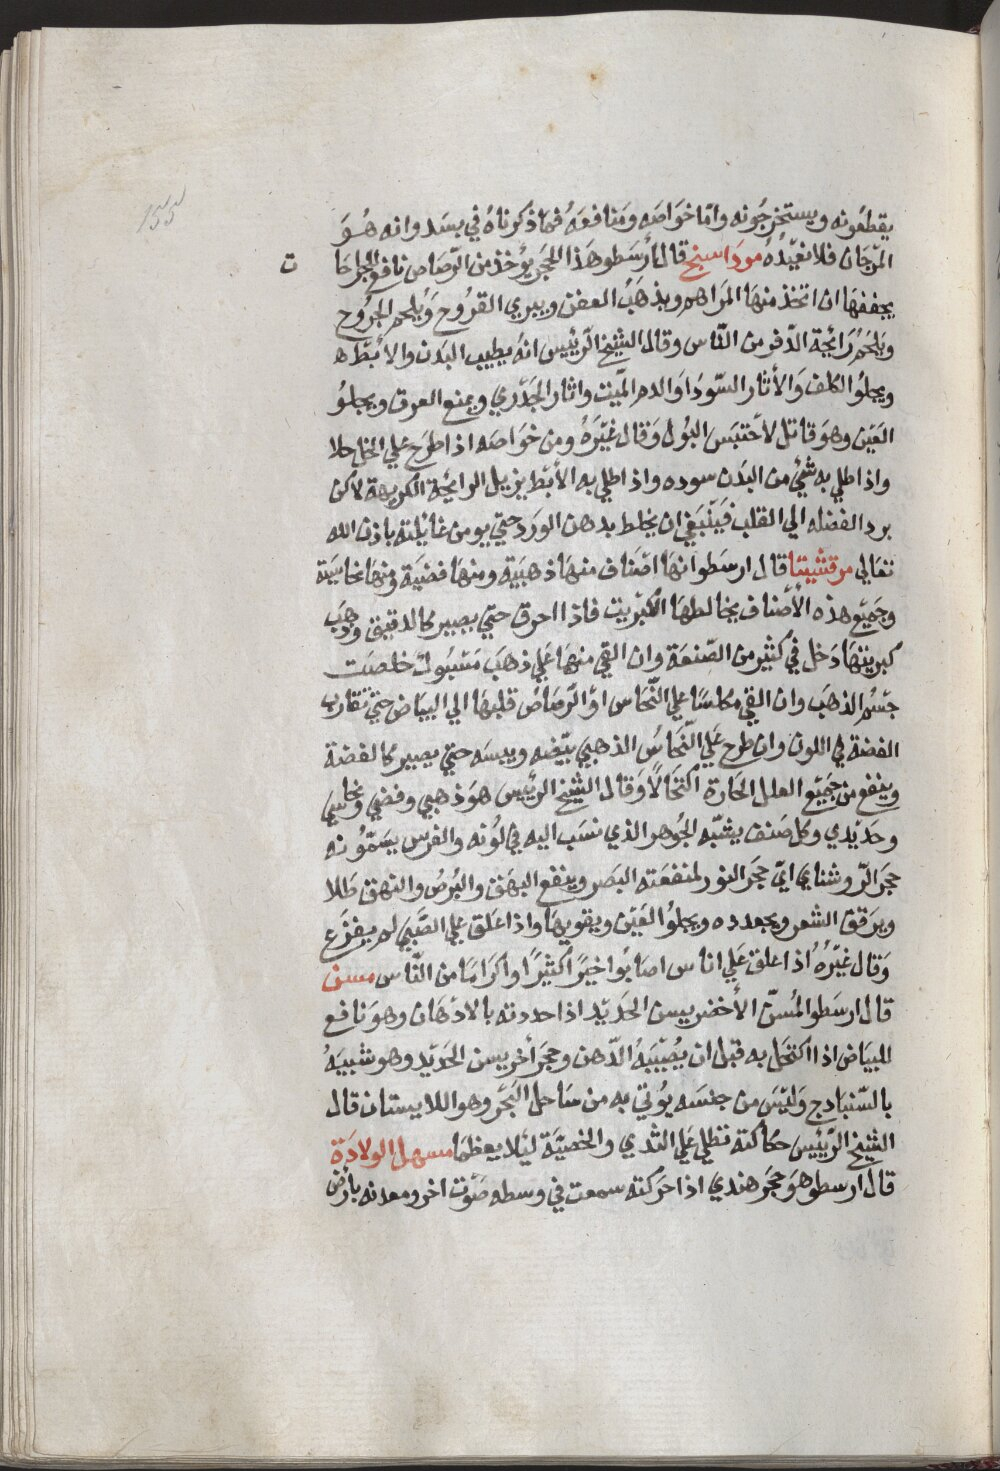 155
يقطعونه ويستخرجونه واما خواصه ومنافعه فما ذكرناه في بسد وانه هو
المرجان فلا نعيده مرداسنج قال ارسطو هذا الحجر يؤخذ من الرصاص نافع الجراحا ت
يجففها ان اتخذ منها المراهم ويذهب العفن ويبري القروح ويلحم الجروح
رائحة الذفر من الناس وقال الشيخ الرئيس انه يطيب البدن والابط
ويجلو الكلف والأثار السودا والدم الميت واثار الجدري ويمنع العرق ويجلو
العين وهو قاتل لاحتبس البول وقال غيره ومن خواصه اذا طرح علي الخل حلا
واذا طلي به شيء من البدن سوده واذ اطلي به الأبط يزيل الرائحة الكريهة لاكن
برد الفضله الي القلب فينبغي ان يخلط بدهن الورد حتي يومن غائلته باذن الله
تعالي مرقشيتا قال ارسطو انها اصناف منها ذهبية ومنها فضية ومنها نحاسية
وجميع هذه الأصناف يخالطها الكبريت فاذا احرق حتي يصير كالدقيق وذهب
كبريتها دخل في كثير من الصنعة وان القي منها علي ذهب مشبوك خلصت
جسم الذهب وان القي مكلسا علي النحاس او الرصاص قلبها الي البياض حتي تقارب
الفضة في اللون وان طرح علي النحاس الذهبي بيضه ويبسه حتي يصير كالفضة
وينفع من جميع العلل الحارة اكتحالا وقال الشيخ الرئيس هو ذهبي وفضي ونحاسي
وحديدي وكل صنف يشبه الجوهر الذي نسب اليه في لونه والفرس يسمونه
حجر الروشناي اي حجر النور لمنفعته البصر وينفع البهق والبرص والنهق طلا
ويرقق الشعر ويجعدده ويجلو العين ويقويها واذا علق علي الصبي لم يفزع
وقال غيره اذا علق علي اناس اصابوا خيرا كثيرا واكراما من الناس مسن
قال ارسطو المسن الأخضر يسن الحديد اذا حددته بالادهان وهو نافع
للبياض اذا اكتحل به قبل ان يصيبه الدهن وحجر أخر يسن الحديد وهو شبيه
بالسنبادج وليس من جنسه يؤتي به من ساحل البحر وهو اللابستان قال
الشيخ الرئيس حكاكته تطلي علي الثدي والخصية ليلا يعظما مسهل الولادة
قال ارسطو هو حجر هندي اذا حركته سمعت في وسطه صوت اخر ومعدنه بارض